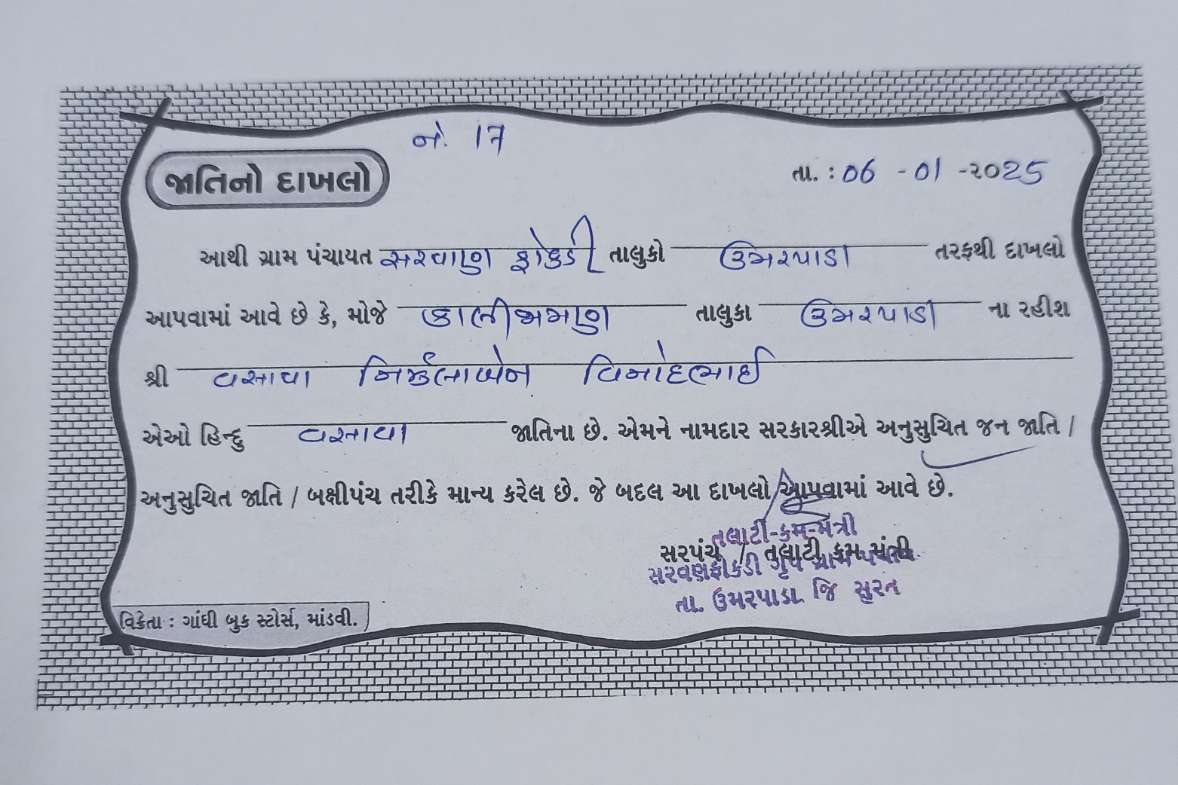 નં. 17
જાતિનો દાખલો
તા. : 06 - 01 - ૨૦25
આથી ગ્રામ પંચાયત સરવાણ ફોકડી તાલુકો ઉમરપાડા તરફથી દાખલો
આપવામાં આવે છે કે, મોજે કાલીજામણ તાલુકા ઉમરપાડા ના રહીશ
શ્રી વસાવા નિર્મલાબેન વિનોદભાઈ
એઓ હિન્દુ વસાવા જાતિના છે. એમને નામદાર સરકારશ્રીએ અનુસુચિત જન જાતિ /
અનુસુચિત જાતિ / બક્ષીપંચ તરીકે માન્ય કરેલ છે. જે બદલ આ દાખલો આપવામાં આવે છે.
તલાટી-કમ-મંત્રી
સરપંચ / તલાટી કમ મંત્રી
સરવણફોકડી ગૃપ ગ્રામ પંચાયત
તા. ઉમરપાડા જિ સુરત
વિક્રેતા : ગાંધી બુક સ્ટોર્સ, માંડવી.